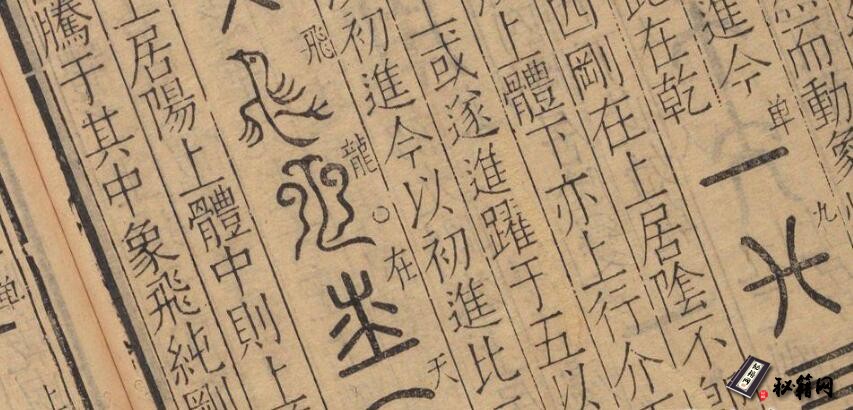 而動象
单
九
進今
在乾
四剛在上居陰不
上體下亦上行介
上或遂進躍于五以
初進今以初進比
飛
龍
在
天
上居陽上體中則上
騰于其中象飛純剛
单
秘籍网